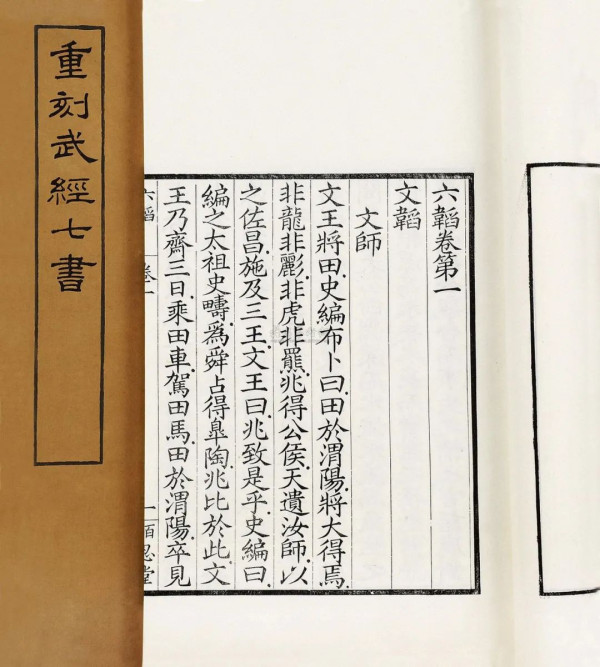 重刻武經七書
六韜卷第一
文韜
文師
文王將田史編布卜曰田於渭陽將大得焉
非龍非彲非虎非羆兆得公侯天遺汝師以
之佐昌施及三王文王曰兆致是乎史編曰
編之太祖史疇爲舜占得臯陶兆比於此文
王乃齋三日乘田車駕田馬田於渭陽卒見
六韜 卷一 一 百忍堂